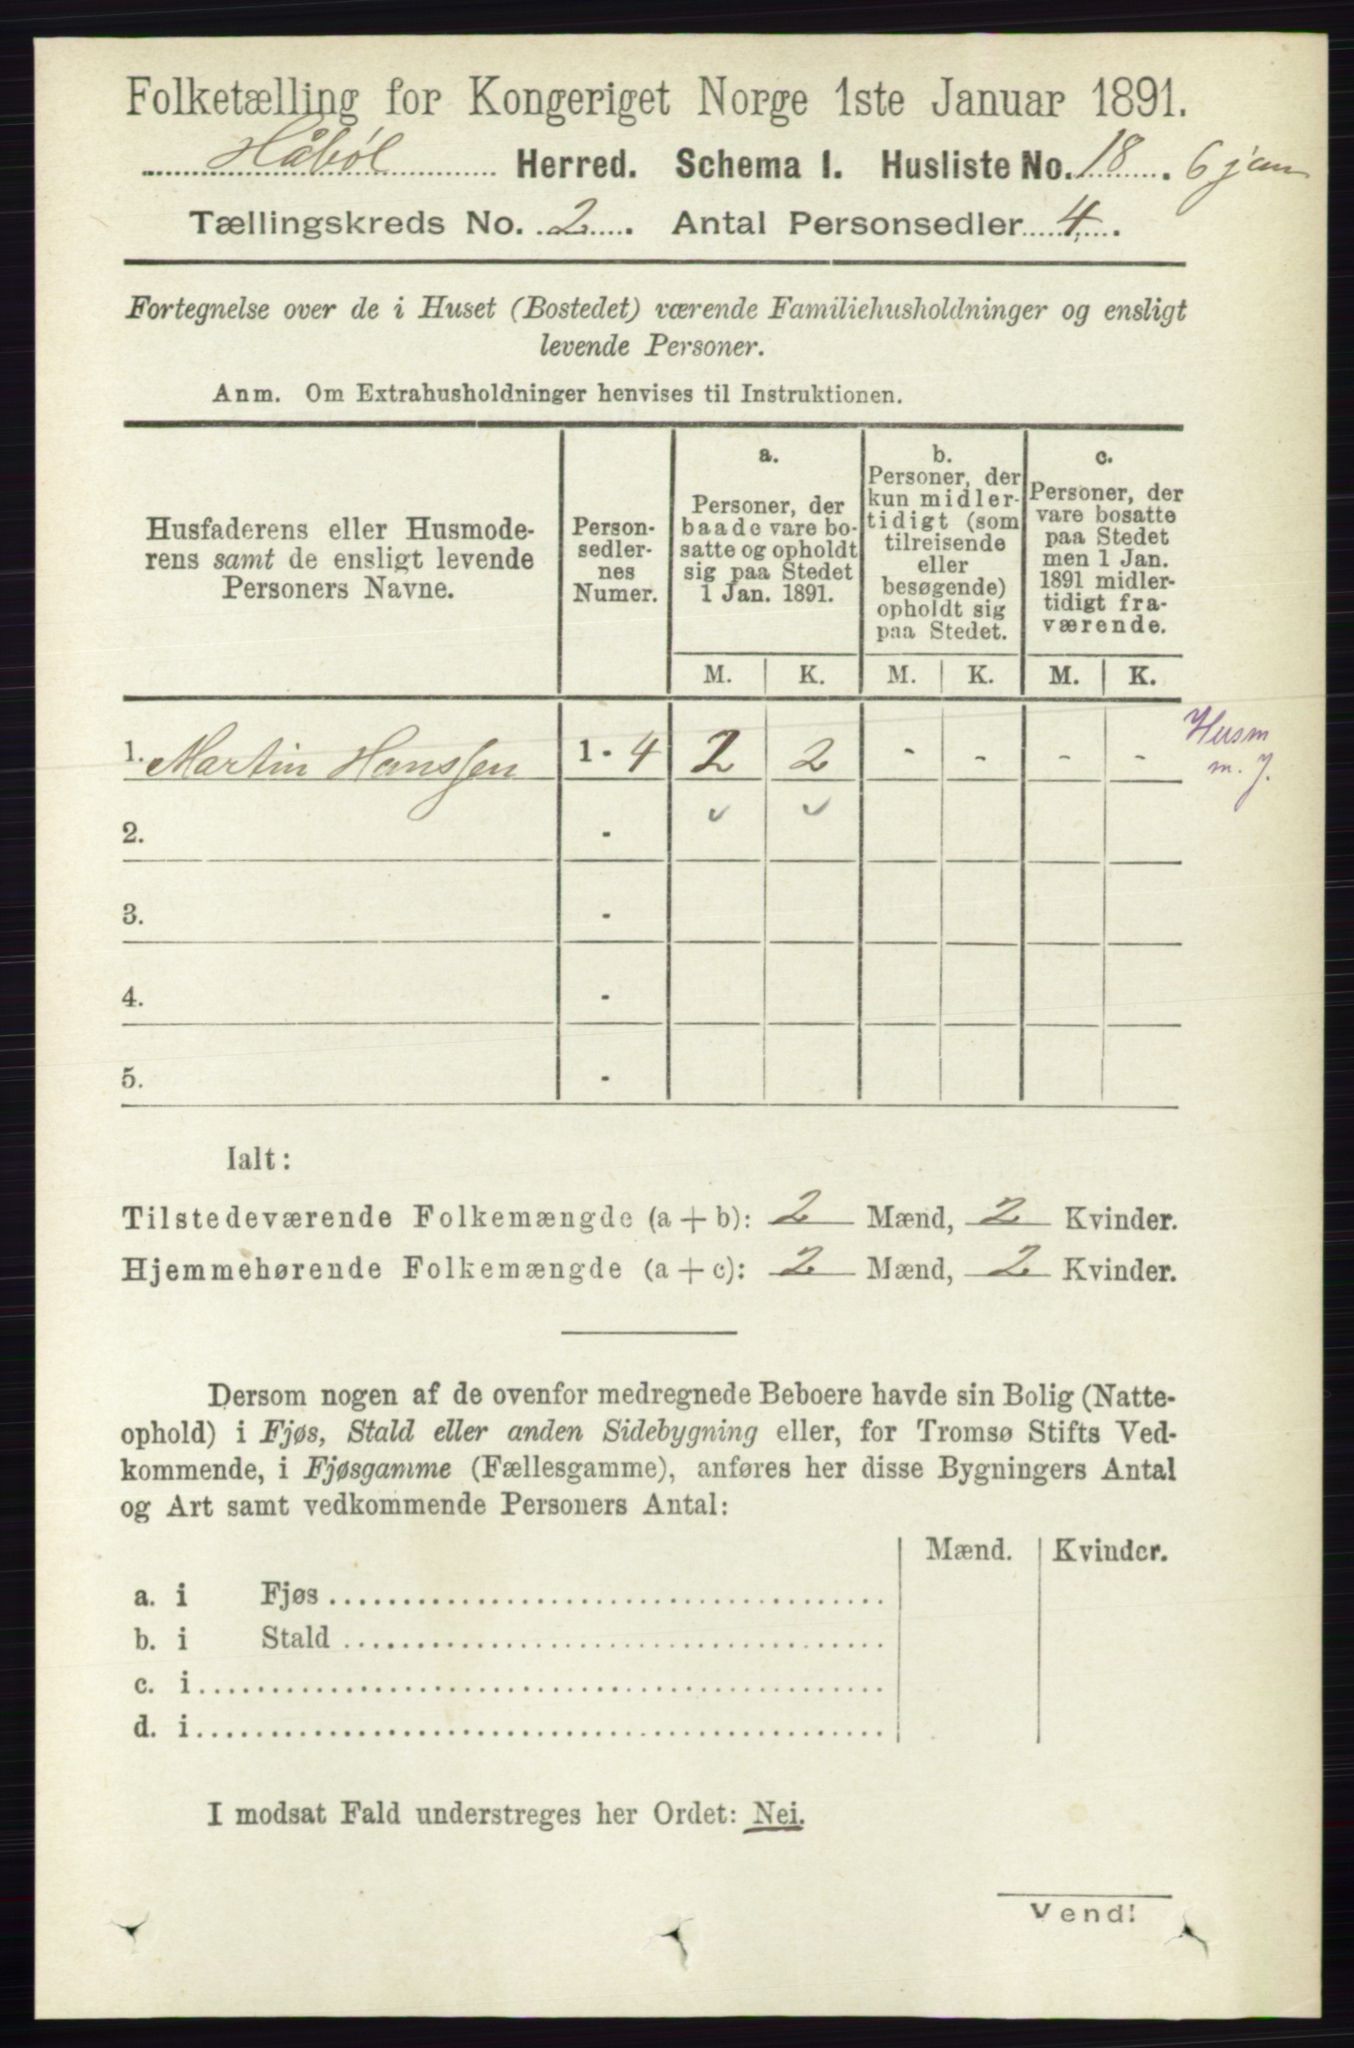 Folketælling for Kongeriget Norge 1ste Januar 1891.
Håbøl Herred. Schema I. Husliste No. 18. 6 jan
Tællingskreds No. 2. Antal Personsedler 4.
Fortegnelse over de i Huset (Bostedet) værende Familiehusholdninger og ensligt
levende Personer.
Anm. Om Extrahusholdninger henvises til Instruktionen.
Husfaderens eller Husmode-
rens samt de ensligt levende
Personers Navne.
Person-
sedler-
nes
Numer.
a.
Personer, der
baade vare bo-
satte og opholdt
sig paa Stedet
1 Jan. 1891.
b.
Personer, der
kun midler-
tidigt (som
tilreisende
eller
besøgende)
opholdt sig
paa Stedet.
c.
Personer, der
vare bosatte
paa Stedet
men 1 Jan.
1891 midler-
tidigt fra-
værende.
M. K. M. K. M. K.
1. Martin Hanssen 1 - 4 2 2 - - - - Husm
m. J.
2. -
3. -
4. -
5. -
Ialt:
Tilstedeværende Folkemængde (a + b): 2 Mænd, 2 Kvinder.
Hjemmehørende Folkemængde (a + c): 2 Mænd, 2 Kvinder.
Dersom nogen af de ovenfor medregnede Beboere havde sin Bolig (Natte-
ophold) i Fjøs, Stald eller anden Sidebygning eller, for Tromsø Stifts Ved-
kommende, i Fjøsgamme (Fællesgamme), anføres her disse Bygningers Antal
og Art samt vedkommende Personers Antal:
Mænd. Kvinder.
a. i Fjøs
b. i Stald
c. i
d. i
I modsat Fald understreges her Ordet: Nei.
Vend!